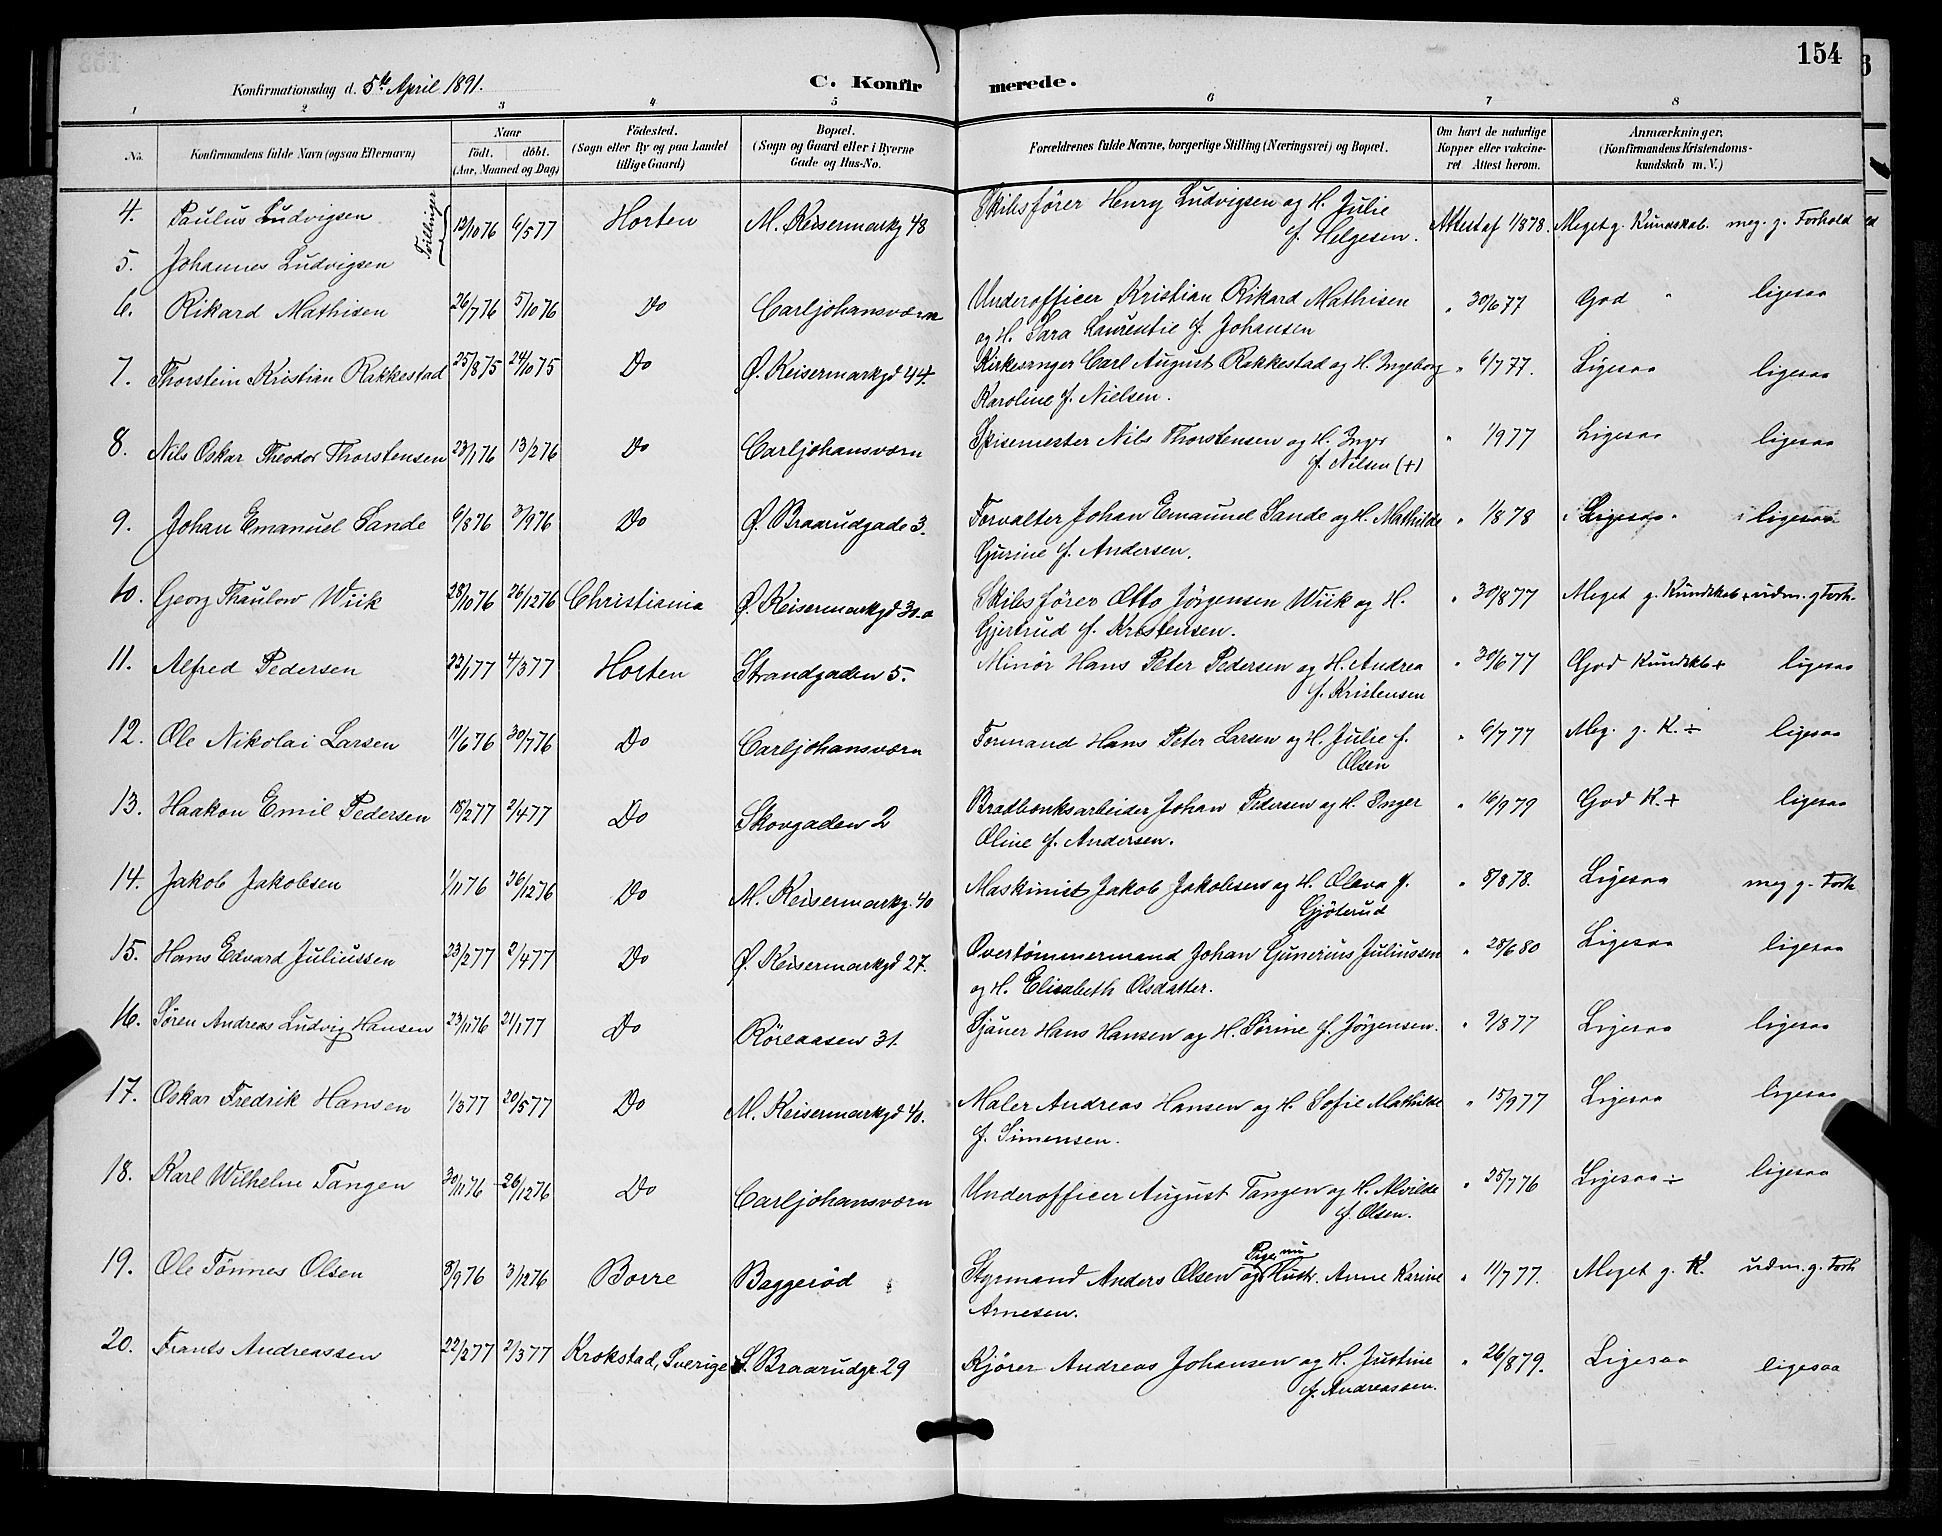 154
Konfirmationsdag d. 5te April 1891.
C. Konfirmerede.
1 2 3 4 5 6 7 8
No.
Konfirmandens fulde Navn (ogsaa Efternavn)
Naar
födt. döbt.
(Aar, Maaned og Dag)
Födested.
(Sogn eller By og paa Landet
tillige Gaard)
Bopæl.
(Sogn og Gaard eller i Byerne
Gade og Hus-No.
Forældrenes fulde Navne, borgerlige Stilling (Næringsvei) og Bopæl.
Om havt de naturlige
Kopper eller vakcine-
ret Attest herom.
Anmærkninger.
(Konfirmandens Kristendoms-
kundskab m. V.)
4. Paulus Ludvigsen Tvillinger 12/10 76 6/5 77 Horten M. Keisermarkg 48 Skibsförer Henry Ludvigsen og H. Julie
f. Helgesen. Attest af 1/8 78. Meget g. Kundskab. meg. g. Forhold
5. Johannes Ludvigsen
6. Rikard Mathisen 26/7 76 5/10 76 Do Carljohansværn Underofficer Kristian Rikard Mathisen
og H. Sara Laurentie f. Johansen " 30/6 77 God " ligesaa
7. Thorstein Kristian Rakkestad 25/8 75 24/10 75 Do Ø. Keisermarkgd 44. Kirkesanger Carl August Rakkestad og H. Ingeborg
Karoline f. Nielsen. " 6/7 77. Ligesaa ligesaa
8. Nils Oskar Theodor Thorstensen 23/1 76 13/2 76 Do Carljohansværn Spisemester Nils Thorstensen og H. Inger
f. Nilsen (+) " 1/9 77 Ligesaa ligesaa
9. Johan Emanuel Sande 6/8 76 3/9 76 Do Ø. Braarudgade 3. Forvalter Johan Emaunel Sande og H. Mathilde
Gurine f. Andersen. " 1/8 78 Ligesaa ligesaa
10. Georg Thaulow Wiik 28/10 76 26/12 76 Christiania Ø. Keisermarkgd 30.a Skibsförer Otto Jörgensen Wiik og H.
Gjertrud f. Kristensen. " 30/8 77 Meget g. Kundskab + udm. g Forh.
11. Alfred Pedersen 22/1 77 4/3 77 Horten Strandgaden 5. Minör Hans Peter Pedersen og H. Andrea
f. Kristensen " 30/6 77 God Kundskb + ligesaa
12. Ole Nikolai Larsen 11/6 76 30/7 76 Do Carljohansværn Formand Hans Peter Larsen og H. Julie f.
Olsen " 6/7 77 Meg. g. K. ÷ ligesaa
13. Haakon Emil Pedersen 18/2 77 2/4 77 Do Skovgaden 2 Bradbænksarbeider Johan Pedersen og H. Inger
Oline f. Andersen. " 16/9 79 God K. + ligesaa
14. Jakob Jakobsen 1/11 76 26/12 76 Do M. Keisermarkg. 40 Maskinist Jakob Jakobsen og H. Oleva f.
Gjöterud " 8/8 78. Ligesaa meg g. Forh
15. Hans Edvard Juliussen 23/2 77 2/4 77 Do Ø. Keisermarkgd 27. Overtömmermand Johan Gunerius Juliussen
og H. Elisabeth Olsdatter. " 28/6 80 Ligesaa ligesaa
16. Sören Andreas Ludvig Hansen 23/11 76 21/1 77 Do Röreaasen 31. Sjauer Hans Hansen og H. Sörine f. Jörgensen. " 9/8 77 Ligesaa ligesaa
17. Oskar Fredrik Hansen 1/3 77 20/5 77 Do M. Keisermarkgd 40. Maler Andreas Hansen og H. Sofie Mathilde
f. Simensen. " 15/9 77 Ligesaa ligesaa
18. Karl Wilhelm Tangen 30/11 76 26/12 76 Do Carljohansværn Underofficer August Tangen og H. Alvilde
f. Olsen. " 25/7 76 Ligesaa ÷ ligesaa
19. Ole Tönnes Olsen 8/9 76 3/12 76 Borre Baggeröd Styrmand Anders Olsen og Pige, nu Hustr. Anne Karine
Arnesen. " 11/7 77. Meget g. K. udm. g. Forh
20. Frants Andreassen 22/2 77 2/3 77 Krokstad, Sverige S. Braarudgr. 29 Kjörer Andreas Johansen og H. Justine
f. Andreassen. " 26/8 79. Ligesaa ligesaa